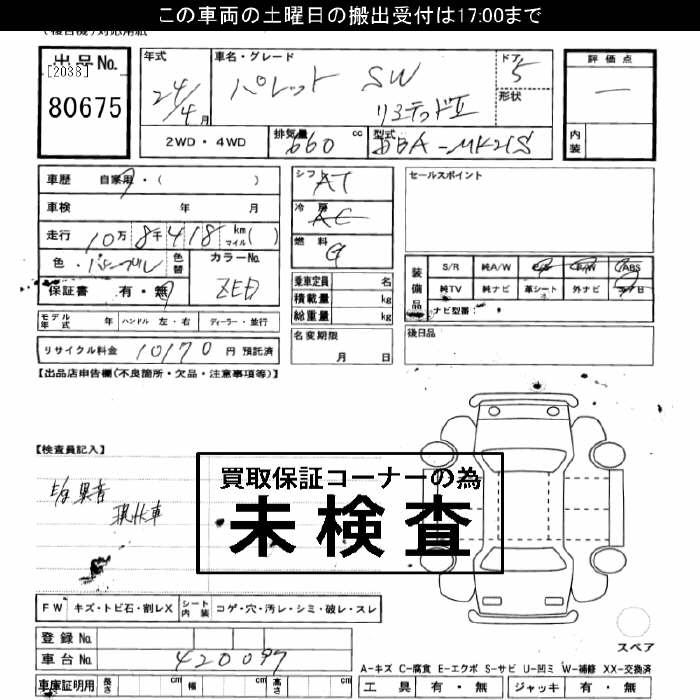 この車両の土曜日の搬出受付は17:00まで
出品No.
[2038]
80675
年式
24/4月
車名・グレード
パレット SW
リミテッドⅡ
ドア
5
形状
評価点
内装
2WD・4WD
排気量 660 cc
型式 DBA-MK21S
車歴 自家用・( )
車検 年 月
走行 10万 8千 418 km マイル( )
色 パープル 色替
カラーNo. ZED
保証書 有・無
シフト AT
冷房 AC
燃料 G
乗車定員 名
積載量 kg
総重量 kg
名変期限 月 日
セールスポイント
装備品
S/R 純A/W P/S P/W ABS
純TV 純ナビ 革シート 外ナビ
ナビ型番:
後日品
モデル年式 年 ハンドル 左・右 ディーラー・並行
リサイクル料金 10170 円 預託済
【出品店申告欄(不良箇所・欠品・注意事項等)】
【検査員記入】
異音
現状車
買取保証コーナーの為
未検査
FW キズ・トビ石・割レX シート内装 コゲ・穴・汚レ・シミ・破レ・スレ
登録No.
車台No. 420097
車庫証明用 長さ cm 幅 cm 高さ cm
スペア
A-キズ C-腐食 E-エクボ S-サビ U-凹ミ W-補修 XX-交換済
工具 有・無 ジャッキ 有・無